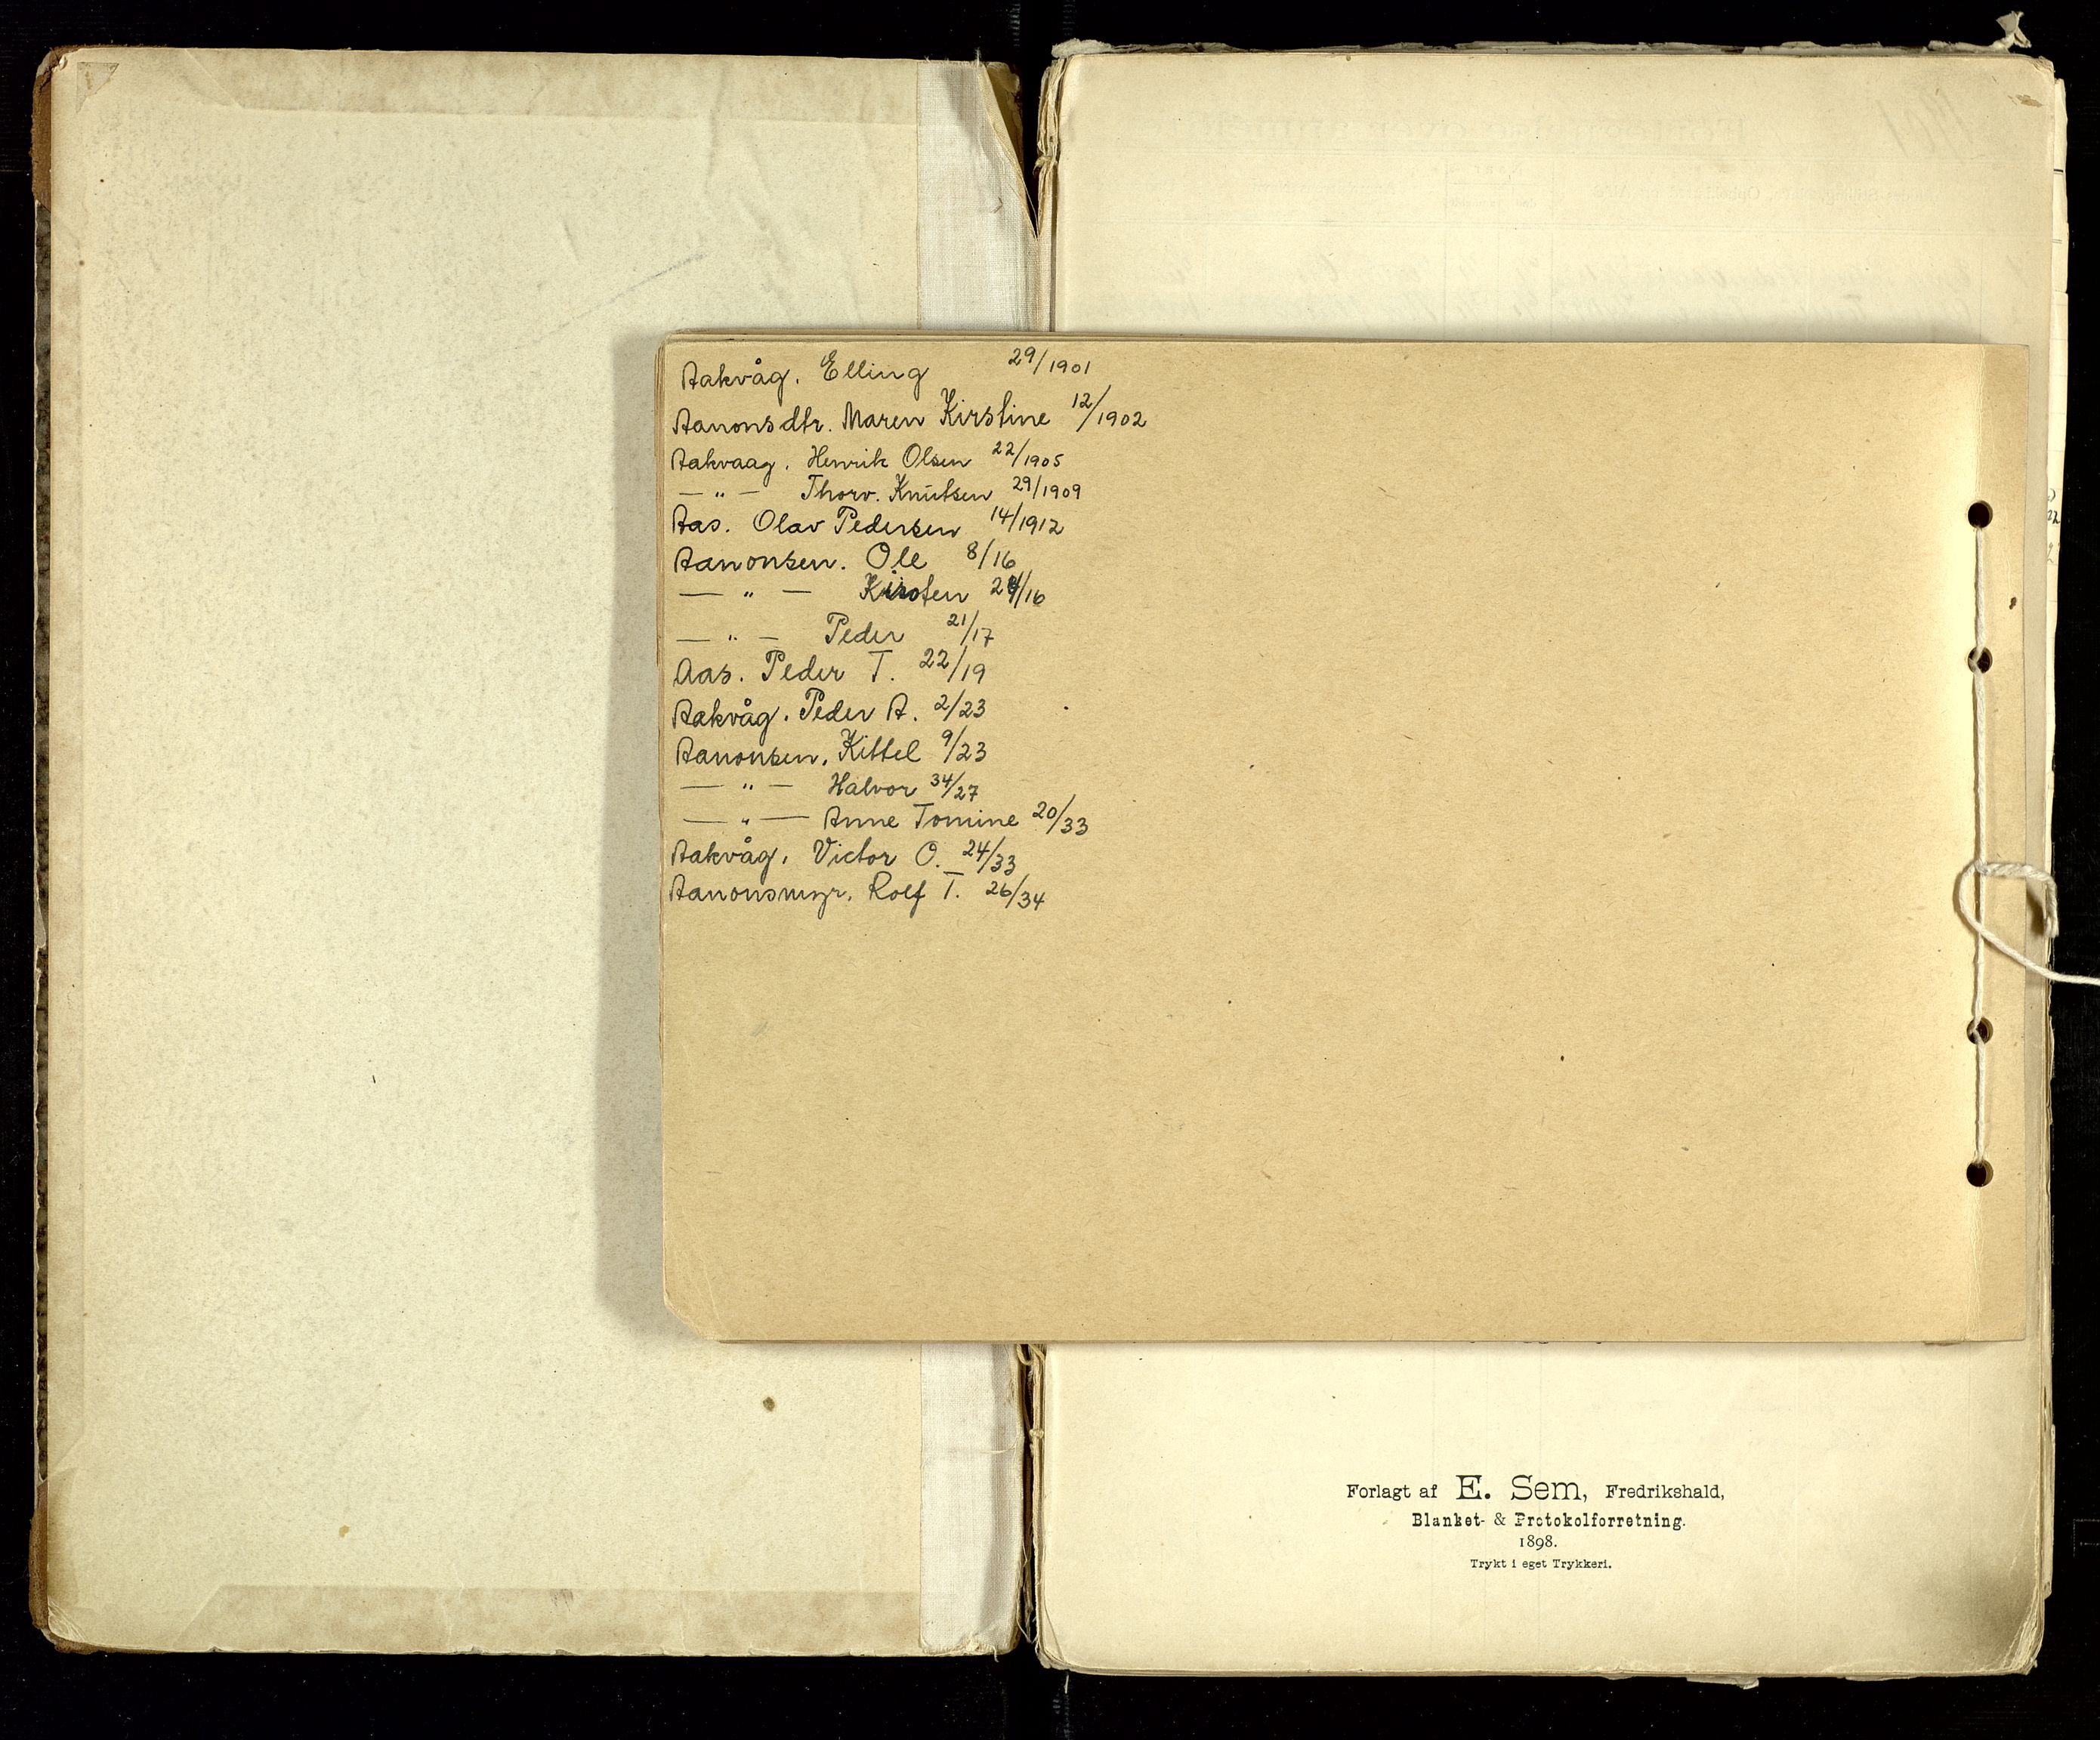 Aakvåg. Elling 29/1901
Aanonsdtr. Maren Kirstine 12/1902
Aakvaag. Henrik Olsen 22/1905
— " — Thorv. Knutsen 29/1909
Aas. Olav Pedersen 14/1912
Aanonsen. Ole 8/16
— " — Kirsten 24/16
— " — Peder 21/17
Aas. Peder T. 22/19
Aakvåg. Peder A. 2/23
Aanonsen, Kittel 9/23
— " — Halvor 34/27
— " — Anne Tomine 20/33
Aakvåg, Victor O. 24/33
Rolf T. 26/34
Forlagt af E. Sem, Fredrikshald,
Blanket- & Protokolforretning.
1898.
Trykt i eget Trykkeri.